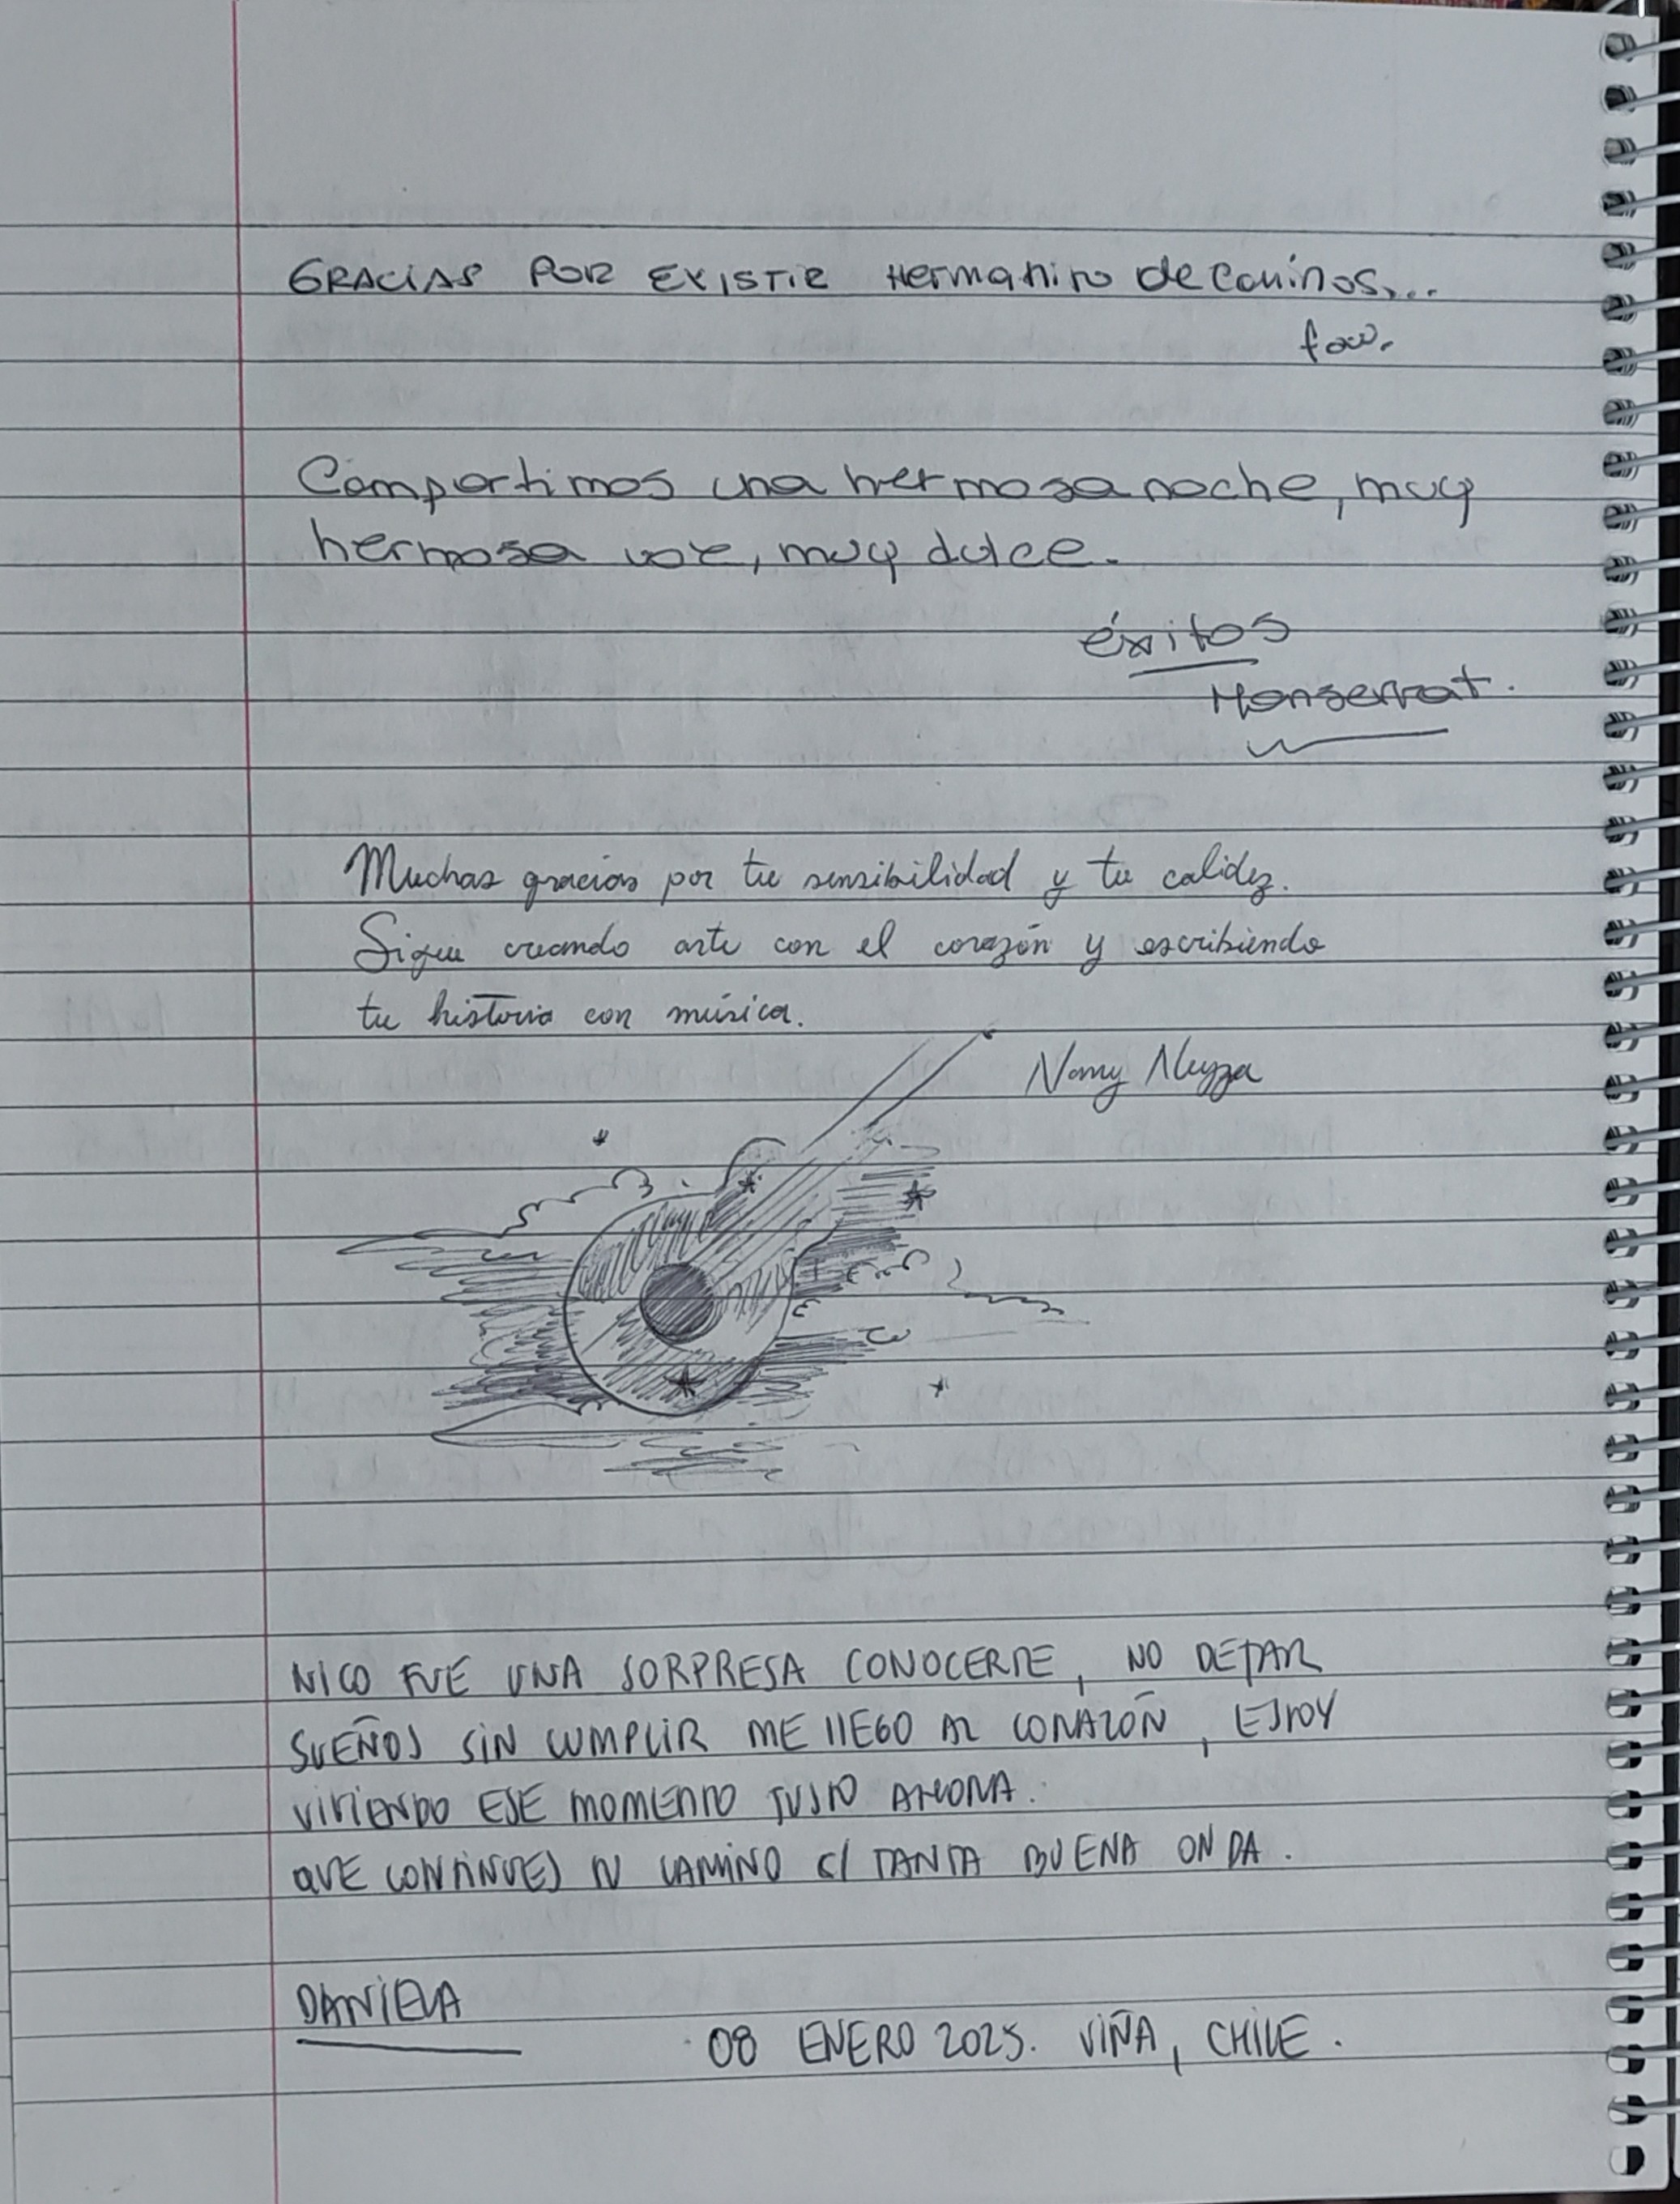 GRACIAS POR EXISTIR Hermanito de Caminos...
Compartimos una hermosa noche, muy
hermosa voz, muy dulce.
éxitos
Monserrat.
Muchas gracias por tu sensibilidad y tu calidez.
Sigue creando arte con el corazón y escribiendo
tu historia con música.
NICO FUE UNA SORPRESA CONOCERTE, NO DEJAR
SUEÑOS SIN CUMPLIR ME LLEGO AL CORAZÓN, ESTOY
VIVIENDO ESE MOMENTO JUSTO AHORA.
QUE CONTINUES TU CAMINO C/ TANTA BUENA ONDA.
DANIELA
08 ENERO 2025. VIÑA, CHILE.